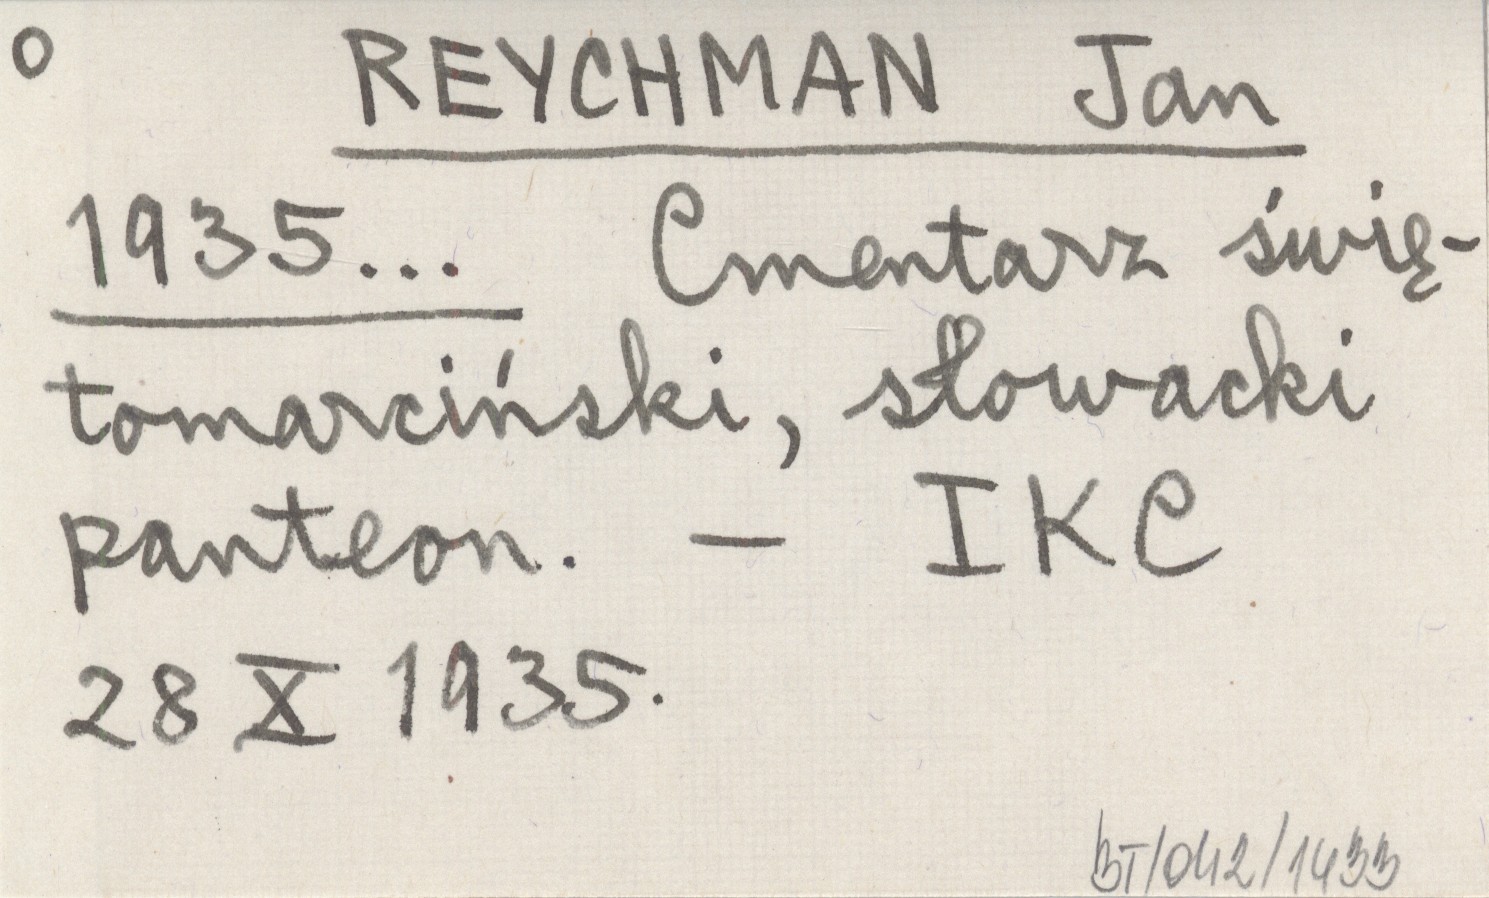 o REYCHMAN Jan
1935... Cmentarz świę-
tomarciński, słowacki
panteon. — IKC
28 X 1935.
BT/042/1433